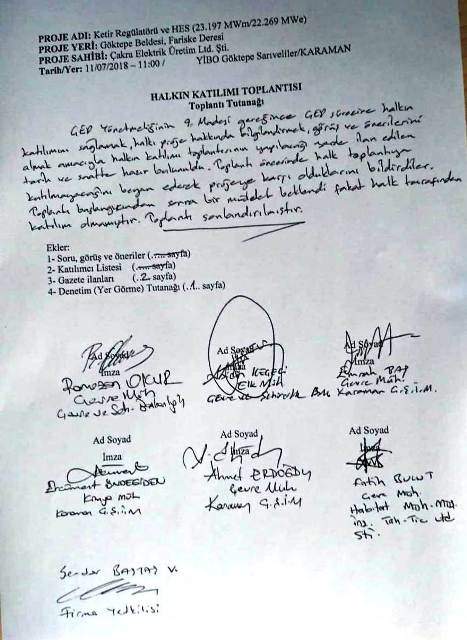 PROJE ADI: Ketir Regülatörü ve HES (23.197 MWm/22.269 MWe)
PROJE YERİ: Göktepe Beldesi, Fariske Deresi
PROJE SAHİBİ: Çakra Elektrik Üretim Ltd. Şti.
Tarih/Yer: 11/07/2018 – 11:00 / YİBO Göktepe Sarıveliler/KARAMAN
HALKIN KATILIMI TOPLANTISI
Toplantı Tutanağı
ÇED Yönetmeliğinin 9. Maddesi gereğince ÇED sürecine halkın
katılımını sağlamak, halkı proje hakkında bilgilendirmek, görüş ve önerilerini
almak amacıyla halkın katılımı toplantısının yapılacağı yerde ilan edilen
tarih ve saatte hazır bulunuldu. Toplantı öncesinde halk toplantıya
katılmayacağını beyan ederek projeye karşı olduklarını bildirdiler.
Toplantı başlangıcından sonra bir müddet beklendi fakat halk tarafından
katılım olmamıştır. Toplantı sonlandırılmıştır.
Ekler:
1- Soru, görüş ve öneriler (.— sayfa)
2- Katılımcı Listesi (.— sayfa)
3- Gazete ilanları (.2. sayfa)
4- Denetim (Yer Görme) Tutanağı (.1.. sayfa)
Ad Soyad Ad Soyad Ad Soyad
İmza
Ramazan OKUR
Çevre Müh
Çevre ve Şeh. Bakanlığı
KEÇECİ
Elk Müh
Çevre ve Şehircilik Bak.
Çevre Müh.
Karaman Ç.Ş.İ.M.
Ad Soyad Ad Soyad Ad Soyad
İmza İmza
Kimya müh
Karaman Ç.Ş.İ.M
Ahmet ERDOĞDU
Çevre Müh
Karaman Ç.Ş.İ.M
Fatih BULUT
Çevre Müh.
Habitat Müh-Müş
inş. Tah-Tic Ltd
Şti.
Serdar BAŞTAŞ V.
Firma Yetkilisi